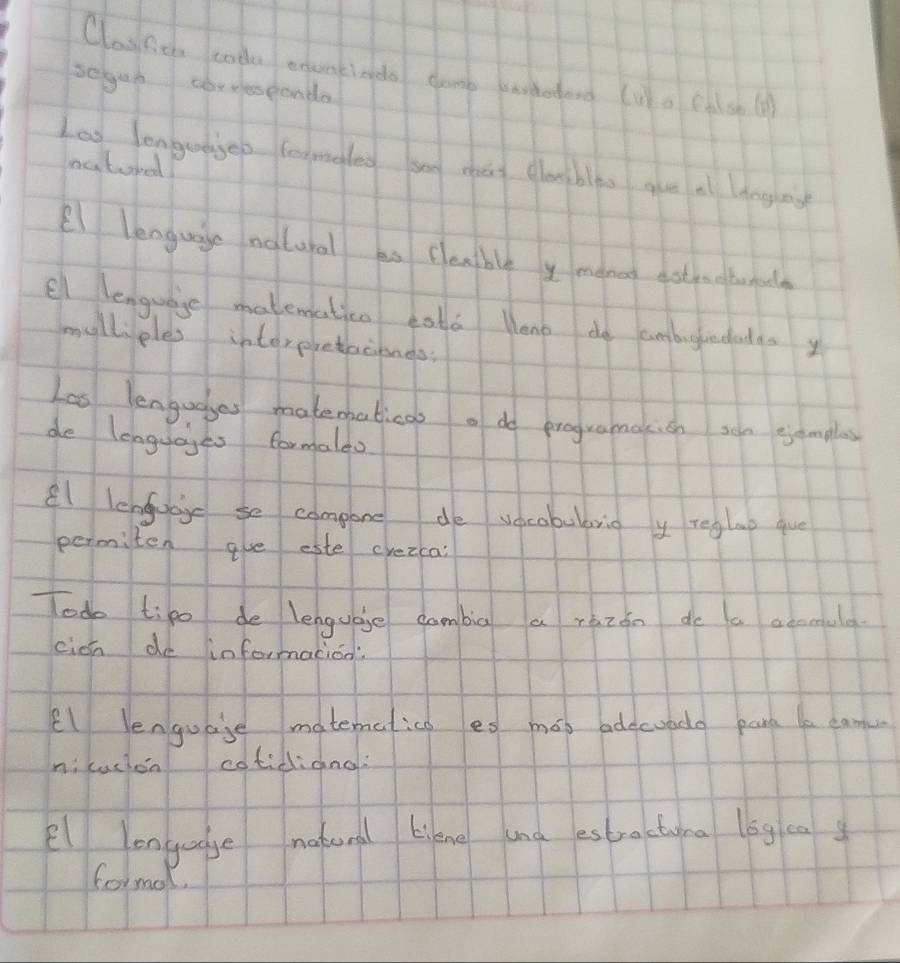 Clasifica cada enunciado como verdadero (v) o falso (f)
segun corresponda
Los lenguajes formales son más flexibles que el lenguaje
natural
El lenguaje natural es flexible y menos estructurado
El lenguaje matematico está lleno de ambiguedades y
multiples interpretaciones:
Los lenguajes matematicos o de programación son ejemplos
de lenguajes formales
El lenguaje se compone de vocabulario y reglas que
permiten que este crezca:
Todo tipo de lenguaje cambia a razón de la acomula-
ción de información:
El lenguaje matematico es más adecuado para la comu-
nicación cotidiana:
El lenguaje natural tiene una estroctura lógica y
formal.